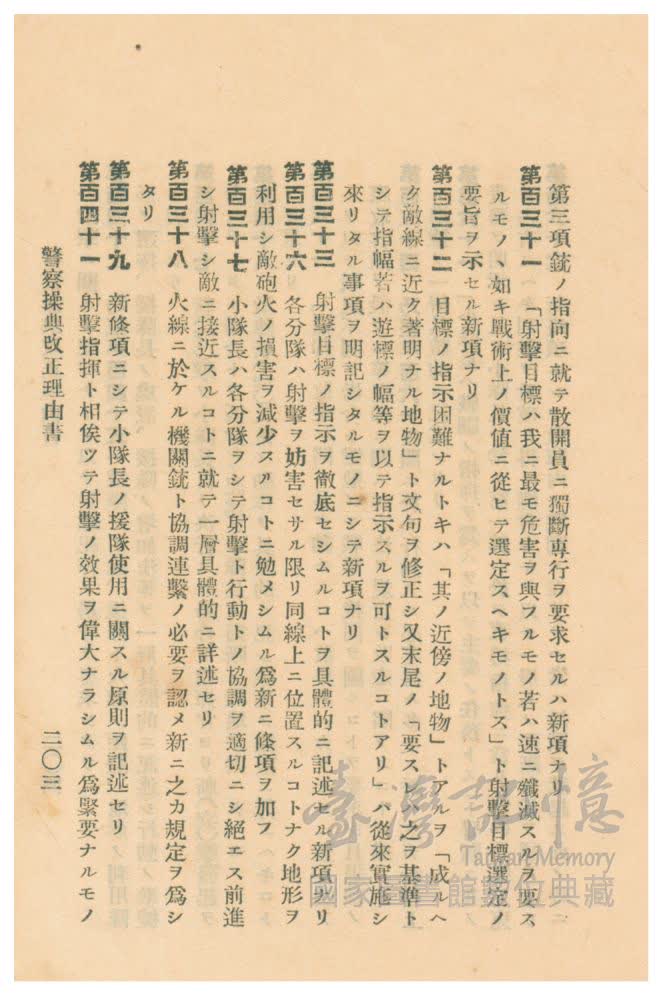 第三項銃ノ指向ニ就テ散開員ニ獨斷專行ヲ要求セルハ新項ナリ
第百三十一　「射擊目標ハ我ニ最モ危害ヲ與フルモノ若ハ速ニ殲滅スルヲ要ス
ルモノヽ如キ戰術上ノ價値ニ從ヒテ選定スヘキモノトス」ト射擊目標選定ノ
要旨ヲ示セル新項ナリ
第百三十二　目標ノ指示困難ナルトキハ「其ノ近傍ノ地物」トアルヲ「成ルヘ
ク敵線ニ近ク著明ナル地物」ト文句ヲ修正シ又末尾ノ「要スレハ之ヲ基準ト
シテ指幅若ハ遊標ノ幅等ヲ以テ指示スルヲ可トスルコトアリ」ハ從來實施シ
來リタル事項ヲ明記シタルモノニシテ新項ナリ
第百三十三　射擊目標ノ指示ヲ徹底セシムルコトヲ具體的ニ記述セル新項ナリ
第百三十六　各分隊ハ射擊ヲ妨害セサル限リ同線上ニ位置スルコトナク地形ヲ
利用シ敵砲火ノ損害ヲ減少スルコトニ勉メシムル爲新ニ條項ヲ加フ
第百三十七　小隊長ハ各分隊ヲシテ射擊ト行動トノ協調ヲ適切ニシ絕エス前進
シ射擊シ敵ニ接近スルコトニ就テ一層具體的ニ詳述セリ
第百三十八　火線ニ於ケル機關銃ト協調連繫ノ必要ヲ認メ新ニ之カ規定ヲ爲シ
タリ
第百三十九　新條項ニシテ小隊長ノ援隊使用ニ關スル原則ヲ記述セリ
第百四十一　射擊指揮ト相俟ツテ射擊ノ效果ヲ偉大ナラシムル爲緊要ナルモノ
警察操典改正理由書
二〇三
臺灣記憶
Taiwan Memory
國家圖書館數位典藏